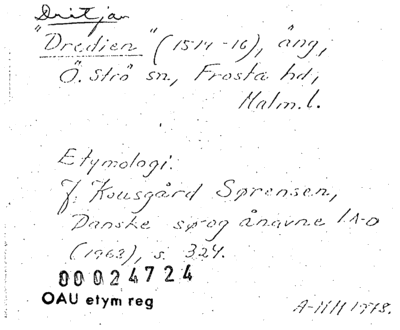 Dritjan
"Dredien" (1514-16), ång,
Ö. Strö sn, Frosta hd,
Malm.l.
Etymologi:
J. Kousgård Sørensen,
Danske sø og ånavne 1 A-D
(1968), s. 324.
00024724
OAU etym reg
A-HH 1978.